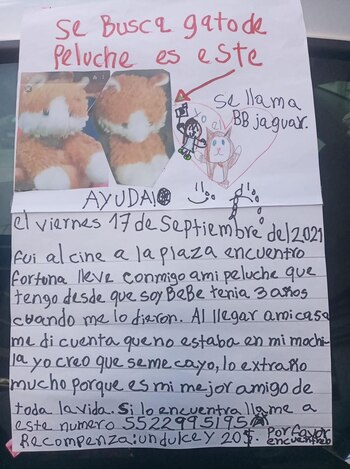 se Busca gato de
peluche es este
se llama
BB jaguar.
yo el
AYUDA!
el viernes 17 de septiembre del 2021
fui al cine a la plaza encuentro
fortona lleve conmigo a mi peluche que
tengo desde que soy BeBe tenia 3 años
cuando me lo dieron. Al llegar ami casa
me di cuenta que no estaba en mi mochi-
la yo creo que se me cayo, lo extraño
mucho porque es mi mejor amigo de
toda la vida. Si lo encuentra llame a
este numero 5522995195
Recompenza: un dulce y 20$. Por favor
encuentreo